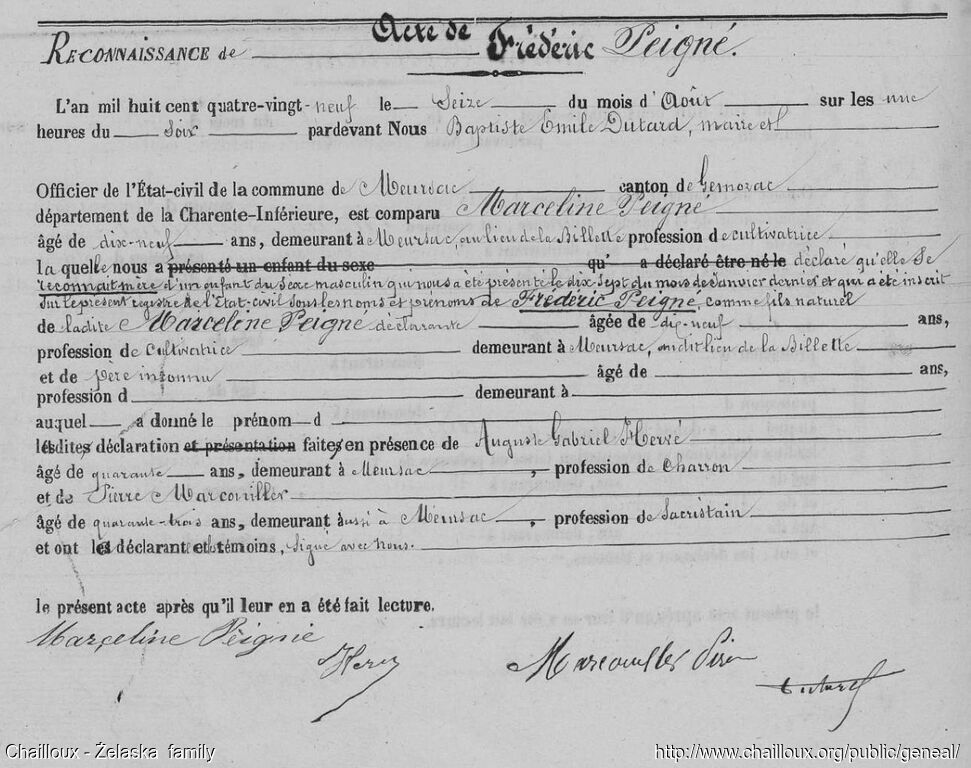 Acte de
RECONNAISSANCE de Frédéric Peigné.
L'an mil huit cent quatre-vingt-neuf le Seize du mois d'Août sur les une
heures du Soir pardevant Nous Baptiste Emile Dutard, maire et
Officier de l'État-civil de la commune de Meursac canton de Gemozac
département de la Charente-Inférieure, est comparu Marceline Peigné
âgé de dix-neuf ans, demeurant à Meursac, au lieu de la Billette profession de cultivatrice
la quelle nous a présenté un enfant du sexe qu' a déclaré être né le déclaré qu'elle Se
reconnait mère d'un enfant du Sexe masculin qui nous a été présenté le dix-Sept du mois de Janvier dernier et qui a été inscrit
Sur le présent registre de l'Etat-civil Sous les noms et prénoms de Frédéric Peigné, comme fils naturel
de ladite Marceline Peigné déclarante âgée de dix-neuf ans,
profession de Cultivatrice demeurant à Meursac, audit lieu de la Billette
et de père inconnu âgé de ans,
profession d demeurant à
auquel a donné le prénom d
lesdites déclaration et présentation faites en présence de Auguste Gabriel Hervé
âgé de quarante ans, demeurant à Meursac, profession de Charron
et de Pierre Marcouiller
âgé de quarante-trois ans, demeurant aussi à Meursac, profession de Sacristain
et ont les déclarant et témoins, Signé avec nous.
le présent acte après qu'il leur en a été fait lecture.
Marceline Peignie
Marcouiller
Dutard
Chailloux - Żelaska family http://www.chailloux.org/public/geneal/